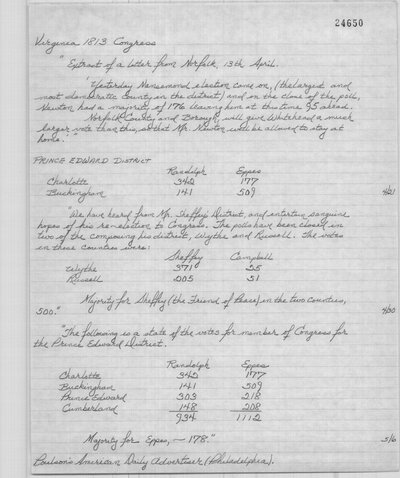 24650
Virginia 1813 Congress
"Extract of a letter from Norfolk, 13th April.
'Yesterday Nansemond election came on, (the largest and
most democratic county in the district) and on the close of the poll,
Newton had a majority of 176 leaving him at this time 95 ahead.
Norfolk County and Borough, will give Whitehead a much
larger vote than this, so that Mr. Newton will be allowed to stay at
home.'"
PRINCE EDWARD DISTRICT
Randolph Eppes
Charlotte 342 177
Buckingham 141 509 4/21
We have heard from Mr. Sheffey's District, and entertain sanguine
hopes of his re-election to Congress. The polls have been closed in
two of the composing his district, Wythe and Russell. The votes
in these Counties were:
Sheffey Campbell
Wythe 371 25
Russell 205 51
Majority for Sheffey (the Friend of Peace) in the two Counties,
500." 4/30
"The following is a state of the votes for member of Congress for
the Prince Edward District.
Randolph Eppes
Charlotte 342 177
Buckingham 141 509
Prince Edward 303 218
Cumberland 148 208
934 1112
Majority for Eppes, — 178." 5/6
Poulson's American Daily Advertiser (Philadelphia).